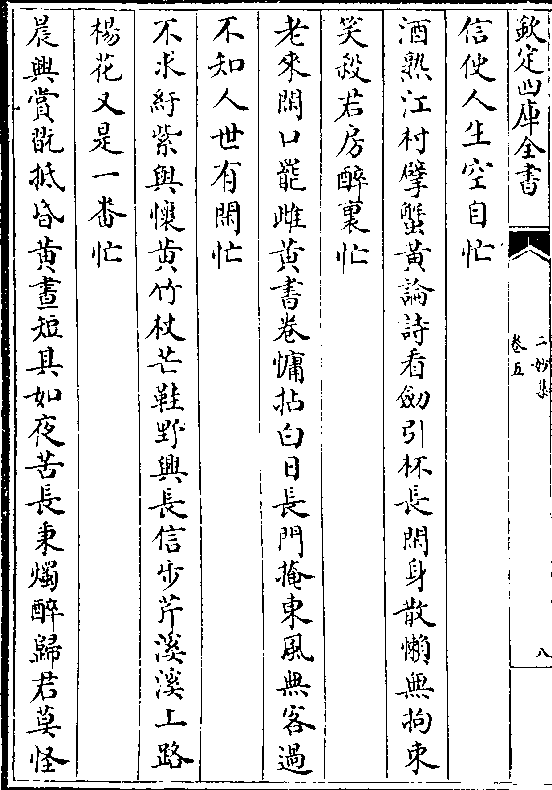 欽定四庫全書
二妙集
卷五
八
信使人生空自忙
酒熟江村擘蟹黃論詩看劒引杯長閑身散懶無拘束
笑殺君房醉裏忙
老來閉口罷雌黃書卷慵拈白日長門掩東風無客過
不知人世有閑忙
不求紆紫與懷黃竹杖芒鞋野興長信步芹溪溪上路
楊花又是一番忙
晨興賞翫抵昏黃晝短其如夜苦長秉燭醉歸君莫怪